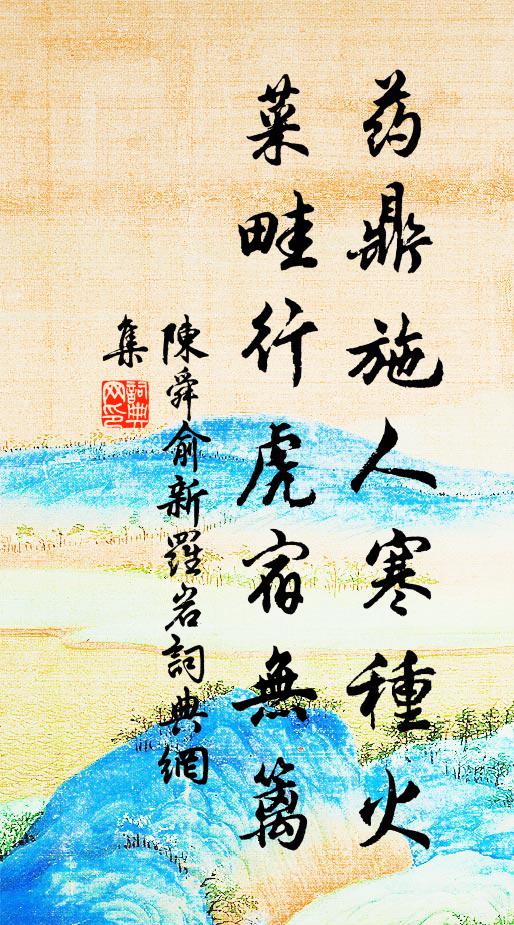 药鼎施人寒種火
菜畦行虎宿無篱
陳舜俞新羅岩詞典網
集
詞典
网印